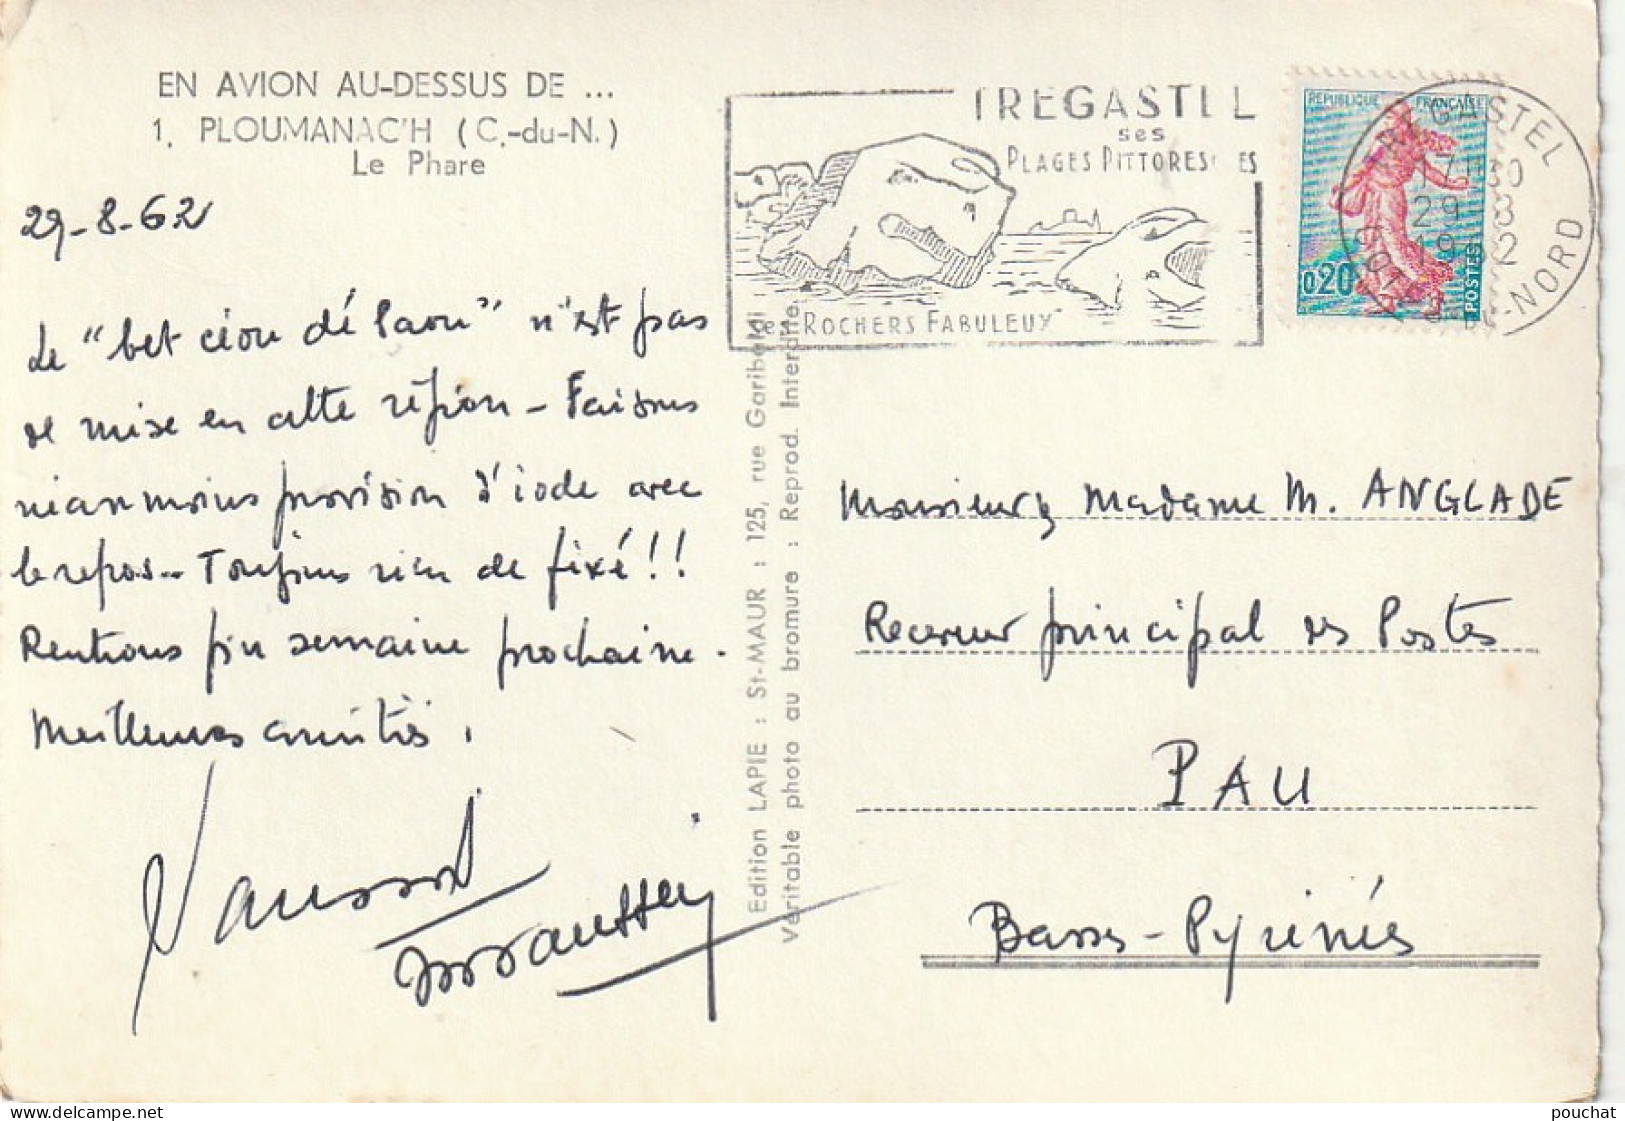 EN AVION AU-DESSUS DE ...
1. PLOUMANAC'H (C.-du-N.)
Le Phare
29-8-62
Le "bet ceou dé Paou" n'est pas
de mise en cette région - Faisons
néanmoins provision d'iode avec
le repos - Toujours rien de fixé!!
Rentrons fin semaine prochaine.
Meilleures amitiés.
TREGASTEL
ses
PLAGES PITTORESQUES
ses ROCHERS FABULEUX
REPUBLIQUE FRANÇAISE
0,20
POSTES
TREGASTEL
17H30
29 8
1962
COTES DU-NORD
Edition LAPIE : St-MAUR : 125, rue Garibaldi
Véritable photo au bromure : Reprod. Interdite
Monsieur & Madame M. ANGLADE
Receveur principal des Postes
PAU
Basses-Pyrénées
pouchat